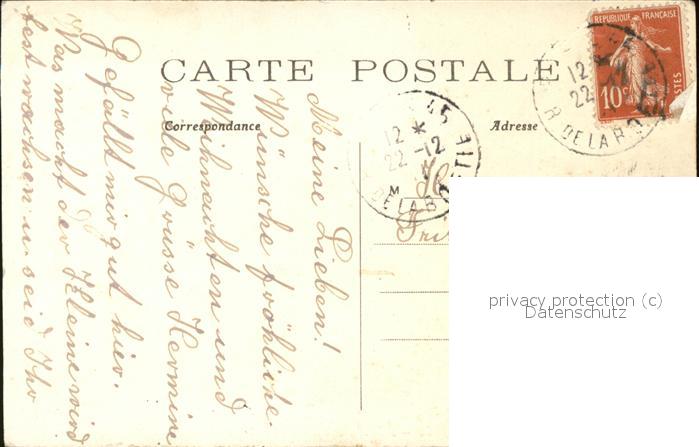 CARTE POSTALE
Correspondance
Adresse
REPUBLIQUE FRANÇAISE
10c
POSTES
12
22
R. DE LA BO
45
12 *
22 - 12
M
DE LA BOETIE
Meine Lieben!
Wünsche fröhliche
Weihnachten und
viele Grüsse Hermine
Gefällt mir gut hier.
Was macht der Kleine wird
fest wachsen u. seid Ihr
privacy protection (c)
Datenschutz